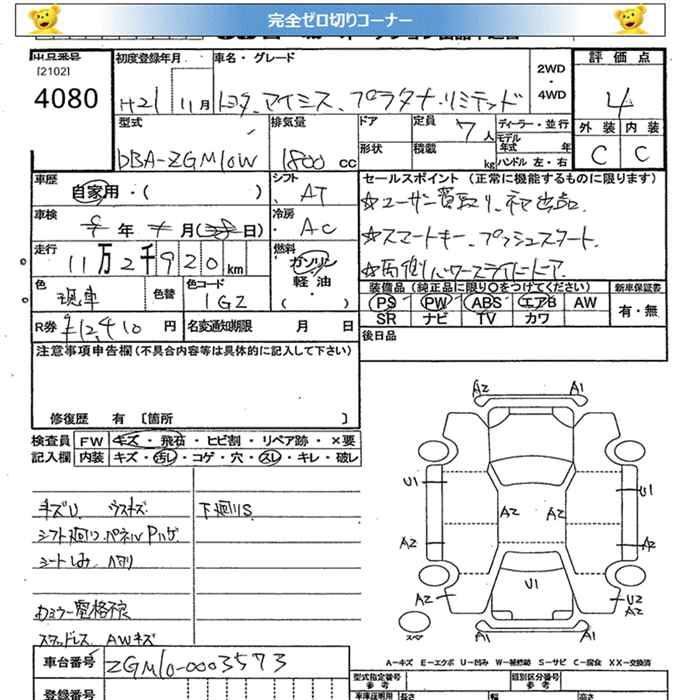 完全ゼロ切りコーナー
出品番号
[2102]
4080
初度登録年月
H21 11月
車名・グレード
トヨタ アイシス プラタナ・リミテッド
2WD
・
4WD
評価点
4
外装 内装
C C
型式
DBA-ZGM10W
排気量
1800 cc
ドア
形状
定員
7人
積載
kg
ディーラー・並行
モデル
年式 年
ハンドル 左・右
車歴
自家用・( )
シフト
AT
セールスポイント (正常に機能するものに限ります)
☆ユーザー買取り、初出品、
☆スマートキー、プッシュスタート、
☆両側パワースライドドア
車検
年 月( 日)
冷房
AC
走行
11万2千920km
燃料
ガソリン
軽油
・( )
色
現車
色替
色コード
1G2
装備品(純正品に限り○をつけてください)
PS PW ABS エアB AW
SR ナビ TV カワ
新車保証書
有・無
R券 ¥12,410 円
名変通知期限 月 日
後日品
注意事項申告欄(不具合内容等は具体的に記入して下さい)
修復歴 有 [箇所 ]
検査員 FW キズ・飛石・ヒビ割・リペア跡・×要
記入欄 内装 キズ・汚レ・コゲ・穴・スレ・キレ・破レ
キズU ウスキズ
下廻りS
シフト廻り パネルPハゲ
シートしみ ヘタリ
カミラー電格不良
スタッドレス AWキズ
車台番号 ZGM10-0003573
登録番号
A2 A1
U1 U1
A2 A2
A2 A2
U1
A2 U2
A2
スペア
A1
A-キズ E-エクボ U-凹み W-補修跡 S-サビ C-腐食 XX-交換済
型式指定番号
参考
類別区分番号
参考
車庫証明用
長さ 幅 高さ